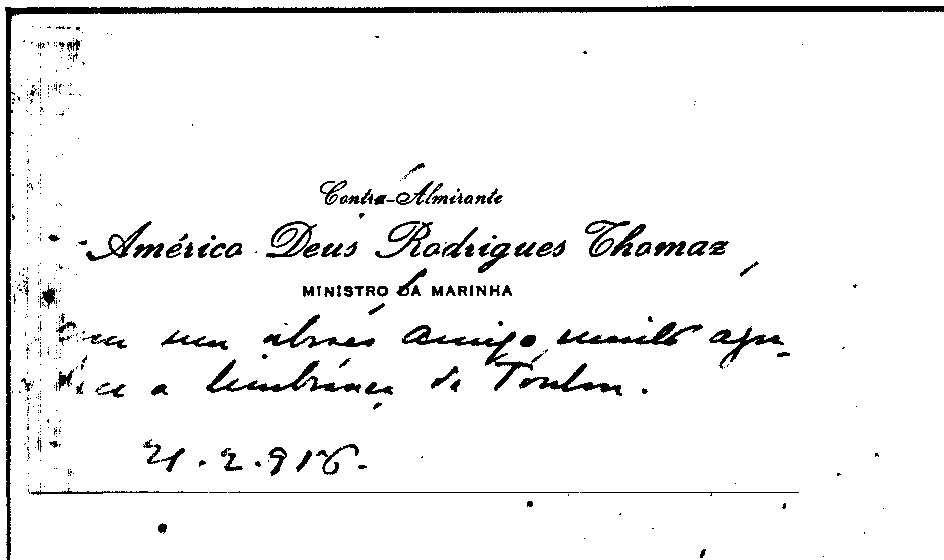 Contra-Almirante
Américo Deus Rodrigues Thomaz
MINISTRO DA MARINHA
Com um abraço amigo, muito agra-
dece a lembrança de Toulon.